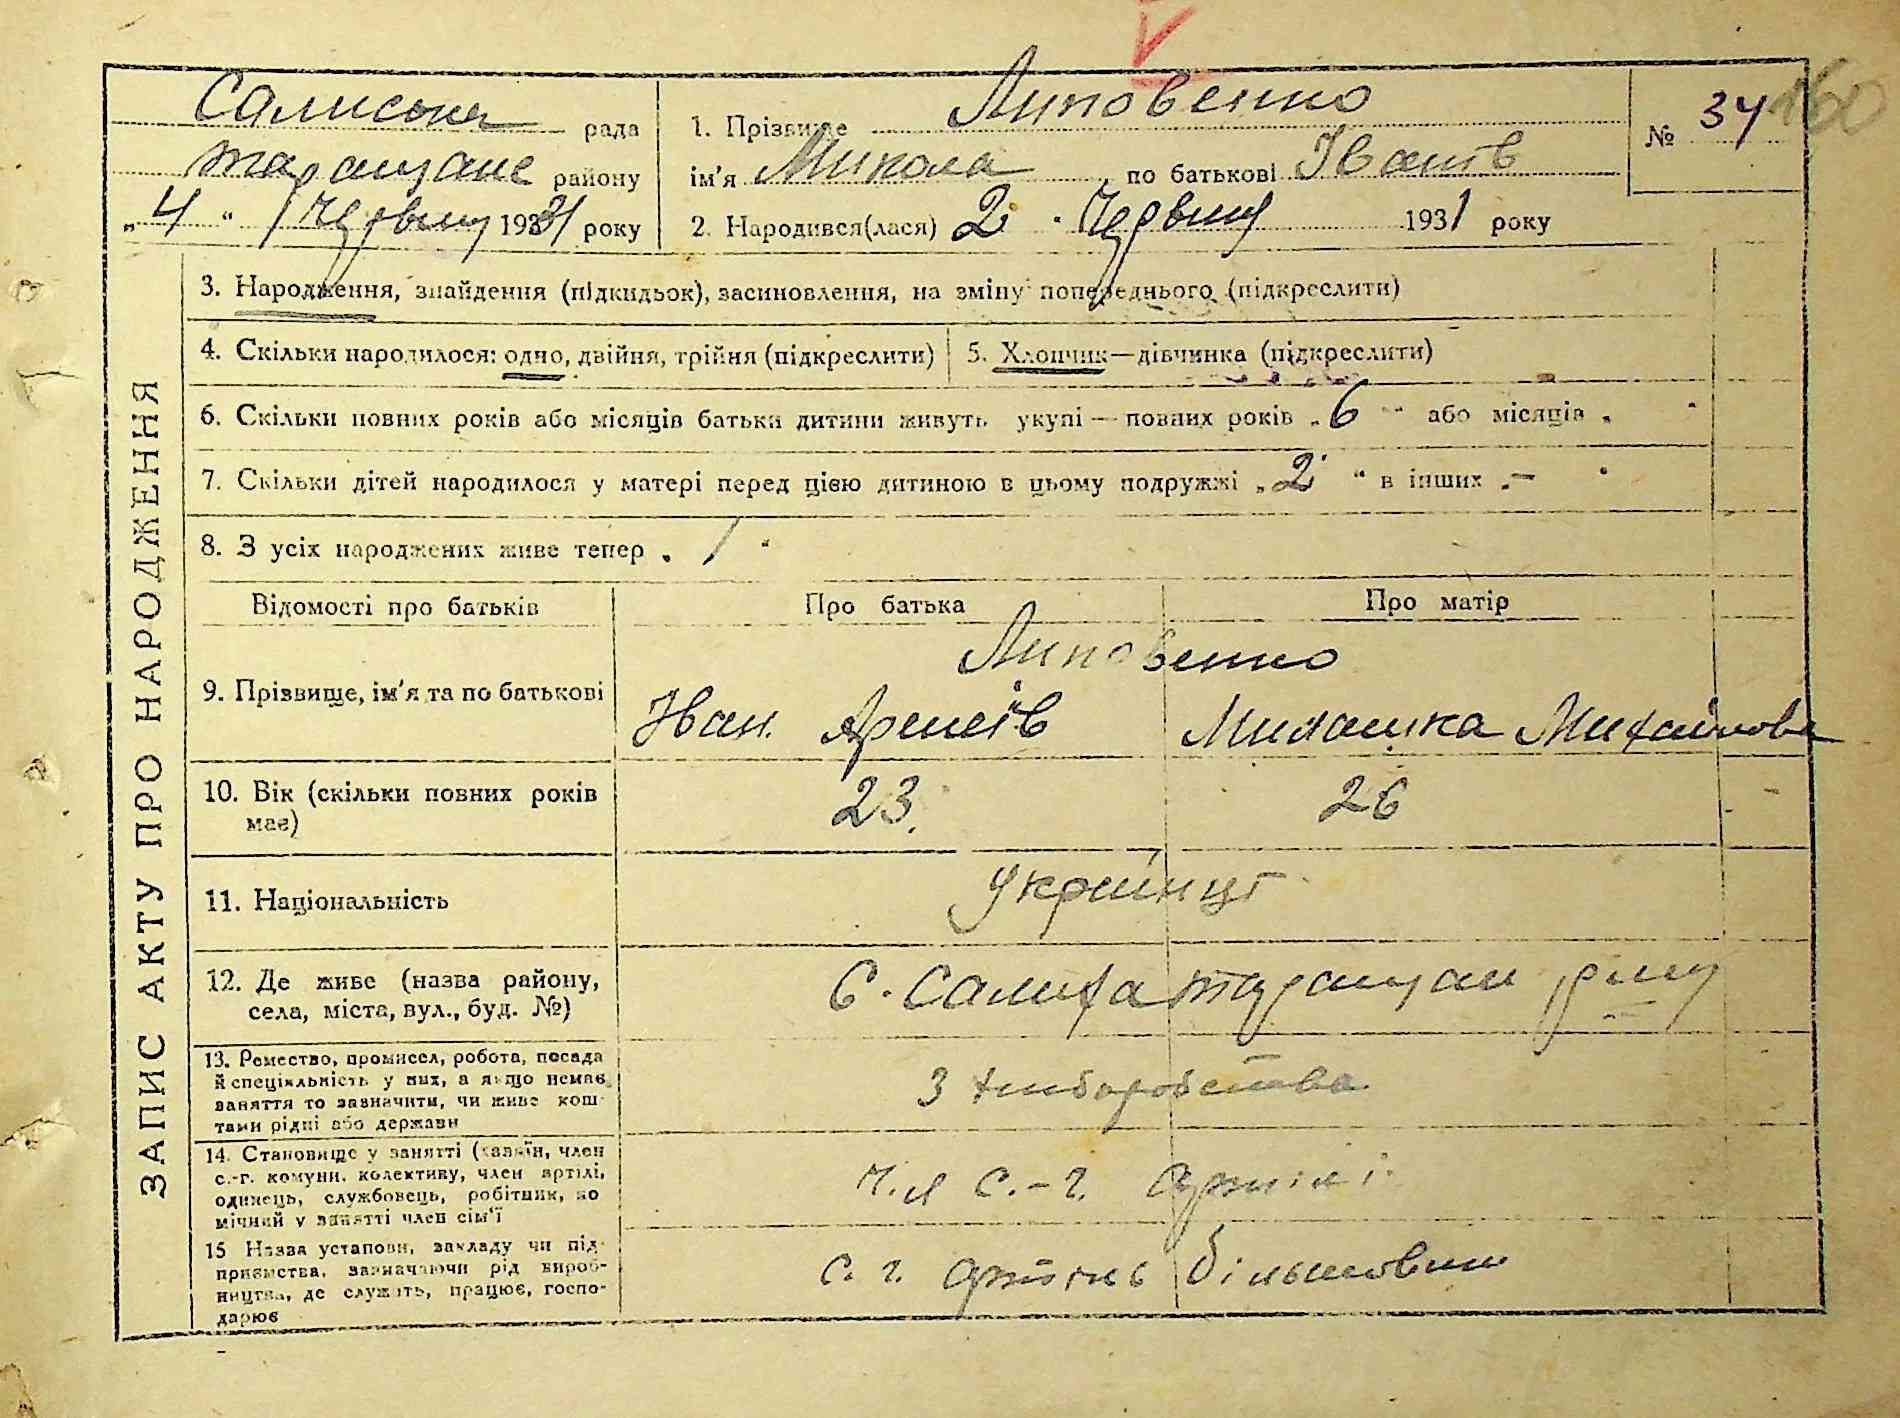 Салиська рада
Таращанс району
„4“ Червня 1931 року
1. Прізвище Липовенко
ім'я Микола, по батькові Іванів
2. Народився(лася) 2 Червня 1931 року
№ 34 160
ЗАПИС АКТУ ПРО НАРОДЖЕННЯ
3. Народження, знайдення (підкидьок), засиновлення, на зміну попереднього (підкреслити)
4. Скільки народилося: одно, двійня, трійня (підкреслити)
5. Хлопчик—дівчинка (підкреслити)
6. Скільки повних років або місяців батьки дитини живуть укупі — повних років „6“ або місяців
7. Скільки дітей народилося у матері перед цією дитиною в цьому подружжі „2“ в інших „—
8. З усіх народжених живе тепер „1“
Відомості про батьків
Про батька
Про матір
9. Прізвище, ім'я та по батькові
Липовенко
Іван.
Милашка Михайлова
10. Вік (скільки повних років
має)
23
26
11. Національність
Українці
12. Де живе (назва району,
села, міста, вул., буд. №)
С. Салиха Таращан р-ну
13. Ремество, промисел, робота, посада
й спеціяльність у них, а якщо немає
заняття то зазначити, чи живе кош-
тами рідні або держави
З хліборобства
14. Становище у занятті (хазяїн, член
с.-г. комуни, колективу, член артілі,
одинець, службовець, робітник, по
мічний у занятті член сім'ї
Чл с.-г. артілі
15 Назва установи, закладу чи під-
приємства, зазначаючи рід вироб-
ництва, де служить, працює, госпо-
дарює
с. г. артіль Більшовик